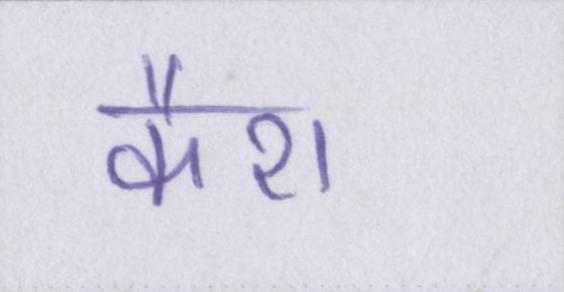 कैश